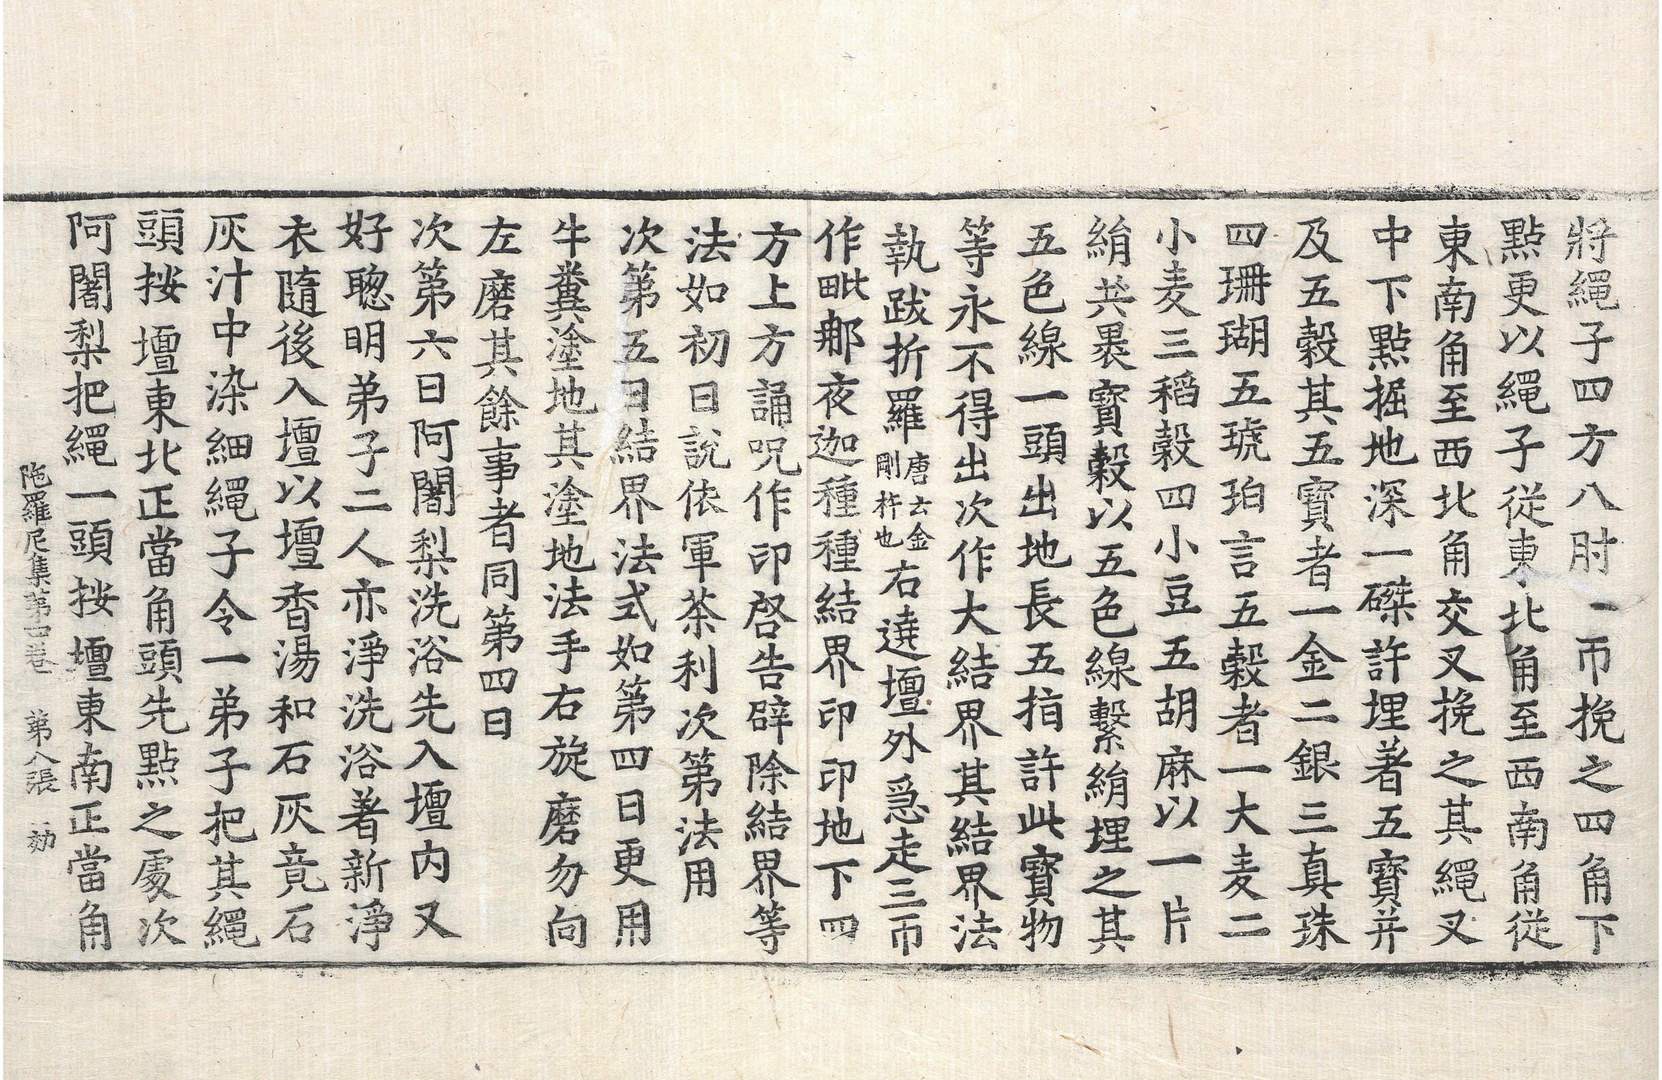 將繩子四方八肘一帀挽之四角下
點更以繩子從東北角至西南角從
東南角至西北角交叉挽之其繩叉
中下點掘地深一磔許埋著五寶并
及五穀其五寶者一金二銀三真珠
四珊瑚五琥珀言五穀者一大麦二
小麦三稻穀四小豆五胡麻以一片
絹共褁寶穀以五色線繫絹埋之其
五色線一頭出地長五指許此寶物
等永不得出次作大結界其結界法
執跋折羅唐云金剛杵也右遶壇外急走三帀
作毗那夜迦種種結界印印地下四
方上方誦呪作印啓告辟除結界等
法如初日說依軍荼利次第法用
次第五日結界法式如第四日更用
牛糞塗地其塗地法手右旋磨勿向
左磨其餘事者同第四日
次第六日阿闍梨洗浴先入壇內又
好聰明弟子二人亦淨洗浴著新淨
衣隨後入壇以壇香湯和石灰竟石
灰汁中染細繩子令一弟子把其繩
頭按壇東北正當角頭先點之處次
阿闍梨把繩一頭按壇東南正當角
陁羅尼集第四卷　第八張　効